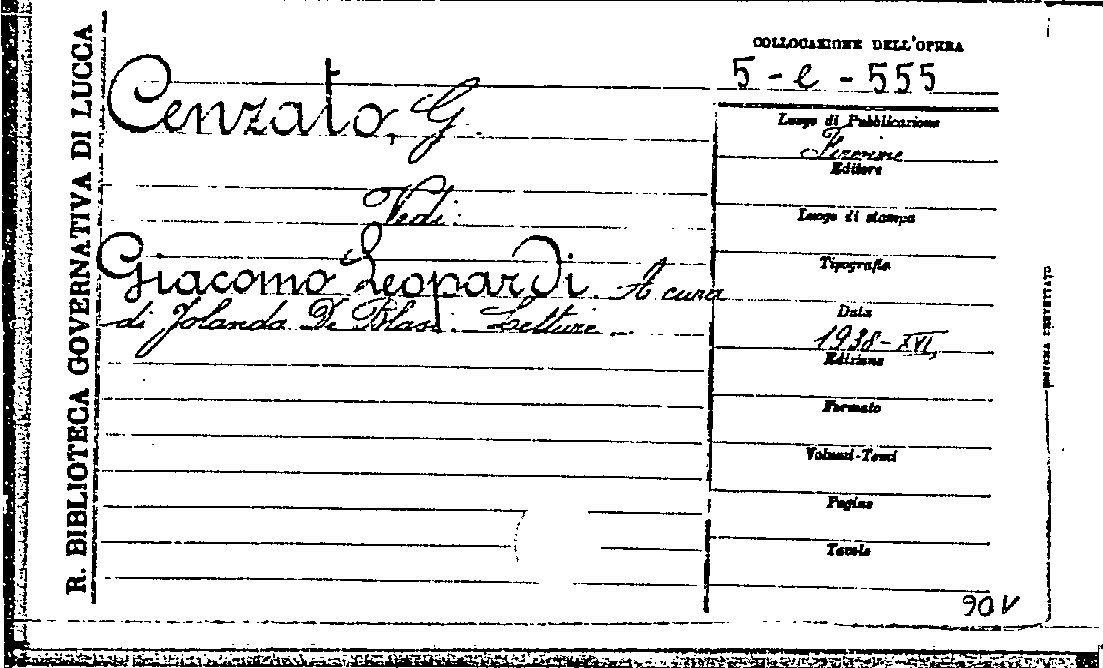 R. BIBLIOTECA GOVERNATIVA DI LUCCA
Cenzato, G.
Vedi:
Giacomo Leopardi. A cura
di Jolanda De Blasi. Letture
COLLOCAZIONE DELL'OPERA
5-e-555
Luogo di Pubblicazione
Firenze
Editore
Luogo di stampa
Tipografia
Data
1938-XVI
Edizione
Formato
Volumi-Tomi
Pagine
Tavole
90V